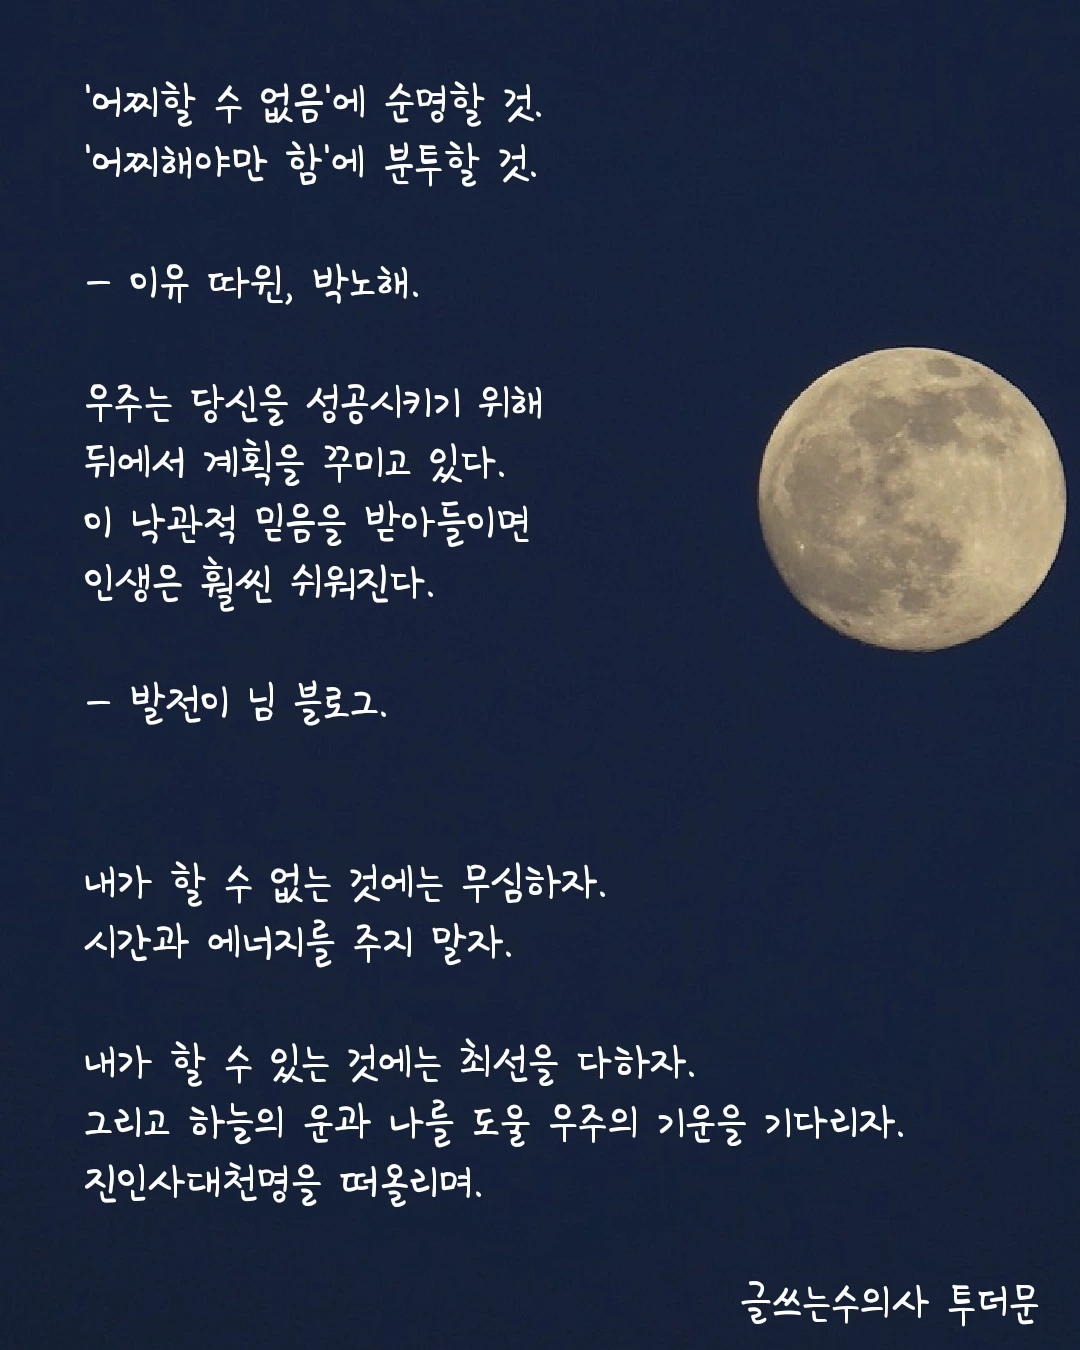 '어찌할 수 없음'에 순명할 것.
'어찌해야만 함'에 분투할 것.
- 이유 따윈, 박노해.
우주는 당신을 성공시키기 위해
뒤에서 계획을 꾸미고 있다.
이 낙관적 믿음을 받아들이면
인생은 훨씬 쉬워진다.
- 발전이 님 블로그.
내가 할 수 없는 것에는 무심하자.
시간과 에너지를 주지 말자.
내가 할 수 있는 것에는 최선을 다하자.
그리고 하늘의 운과 나를 도울 우주의 기운을 기다리자.
진인사대천명을 떠올리며.
글쓰는수의사 투더문